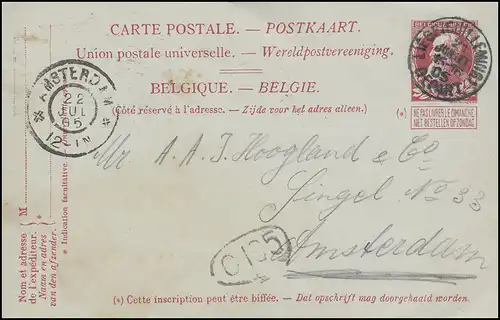 CARTE POSTALE. — POSTKAART.
Union postale universelle. — Wereldpostvereeniging.
BELGIQUE. — BELGIE.
(Côté réservé à l'adresse. — Zijde voor het adres alleen.)
(*)
NE PAS LIVRER LE DIMANCHE
NIET BESTELLEN OP ZONDAG
AMSTERDAM
22
JUL
05
12
Mr. A. A. J. Hoogland & Co
Singel No 33
Amsterdam
C 135
M
Nom et adresse
de l'expéditeur.
Naam en adres
van den afzender.
* Indication facultative.
(*) Cette inscription peut être biffée. — Dat opschrift mag doorgehaald worden.